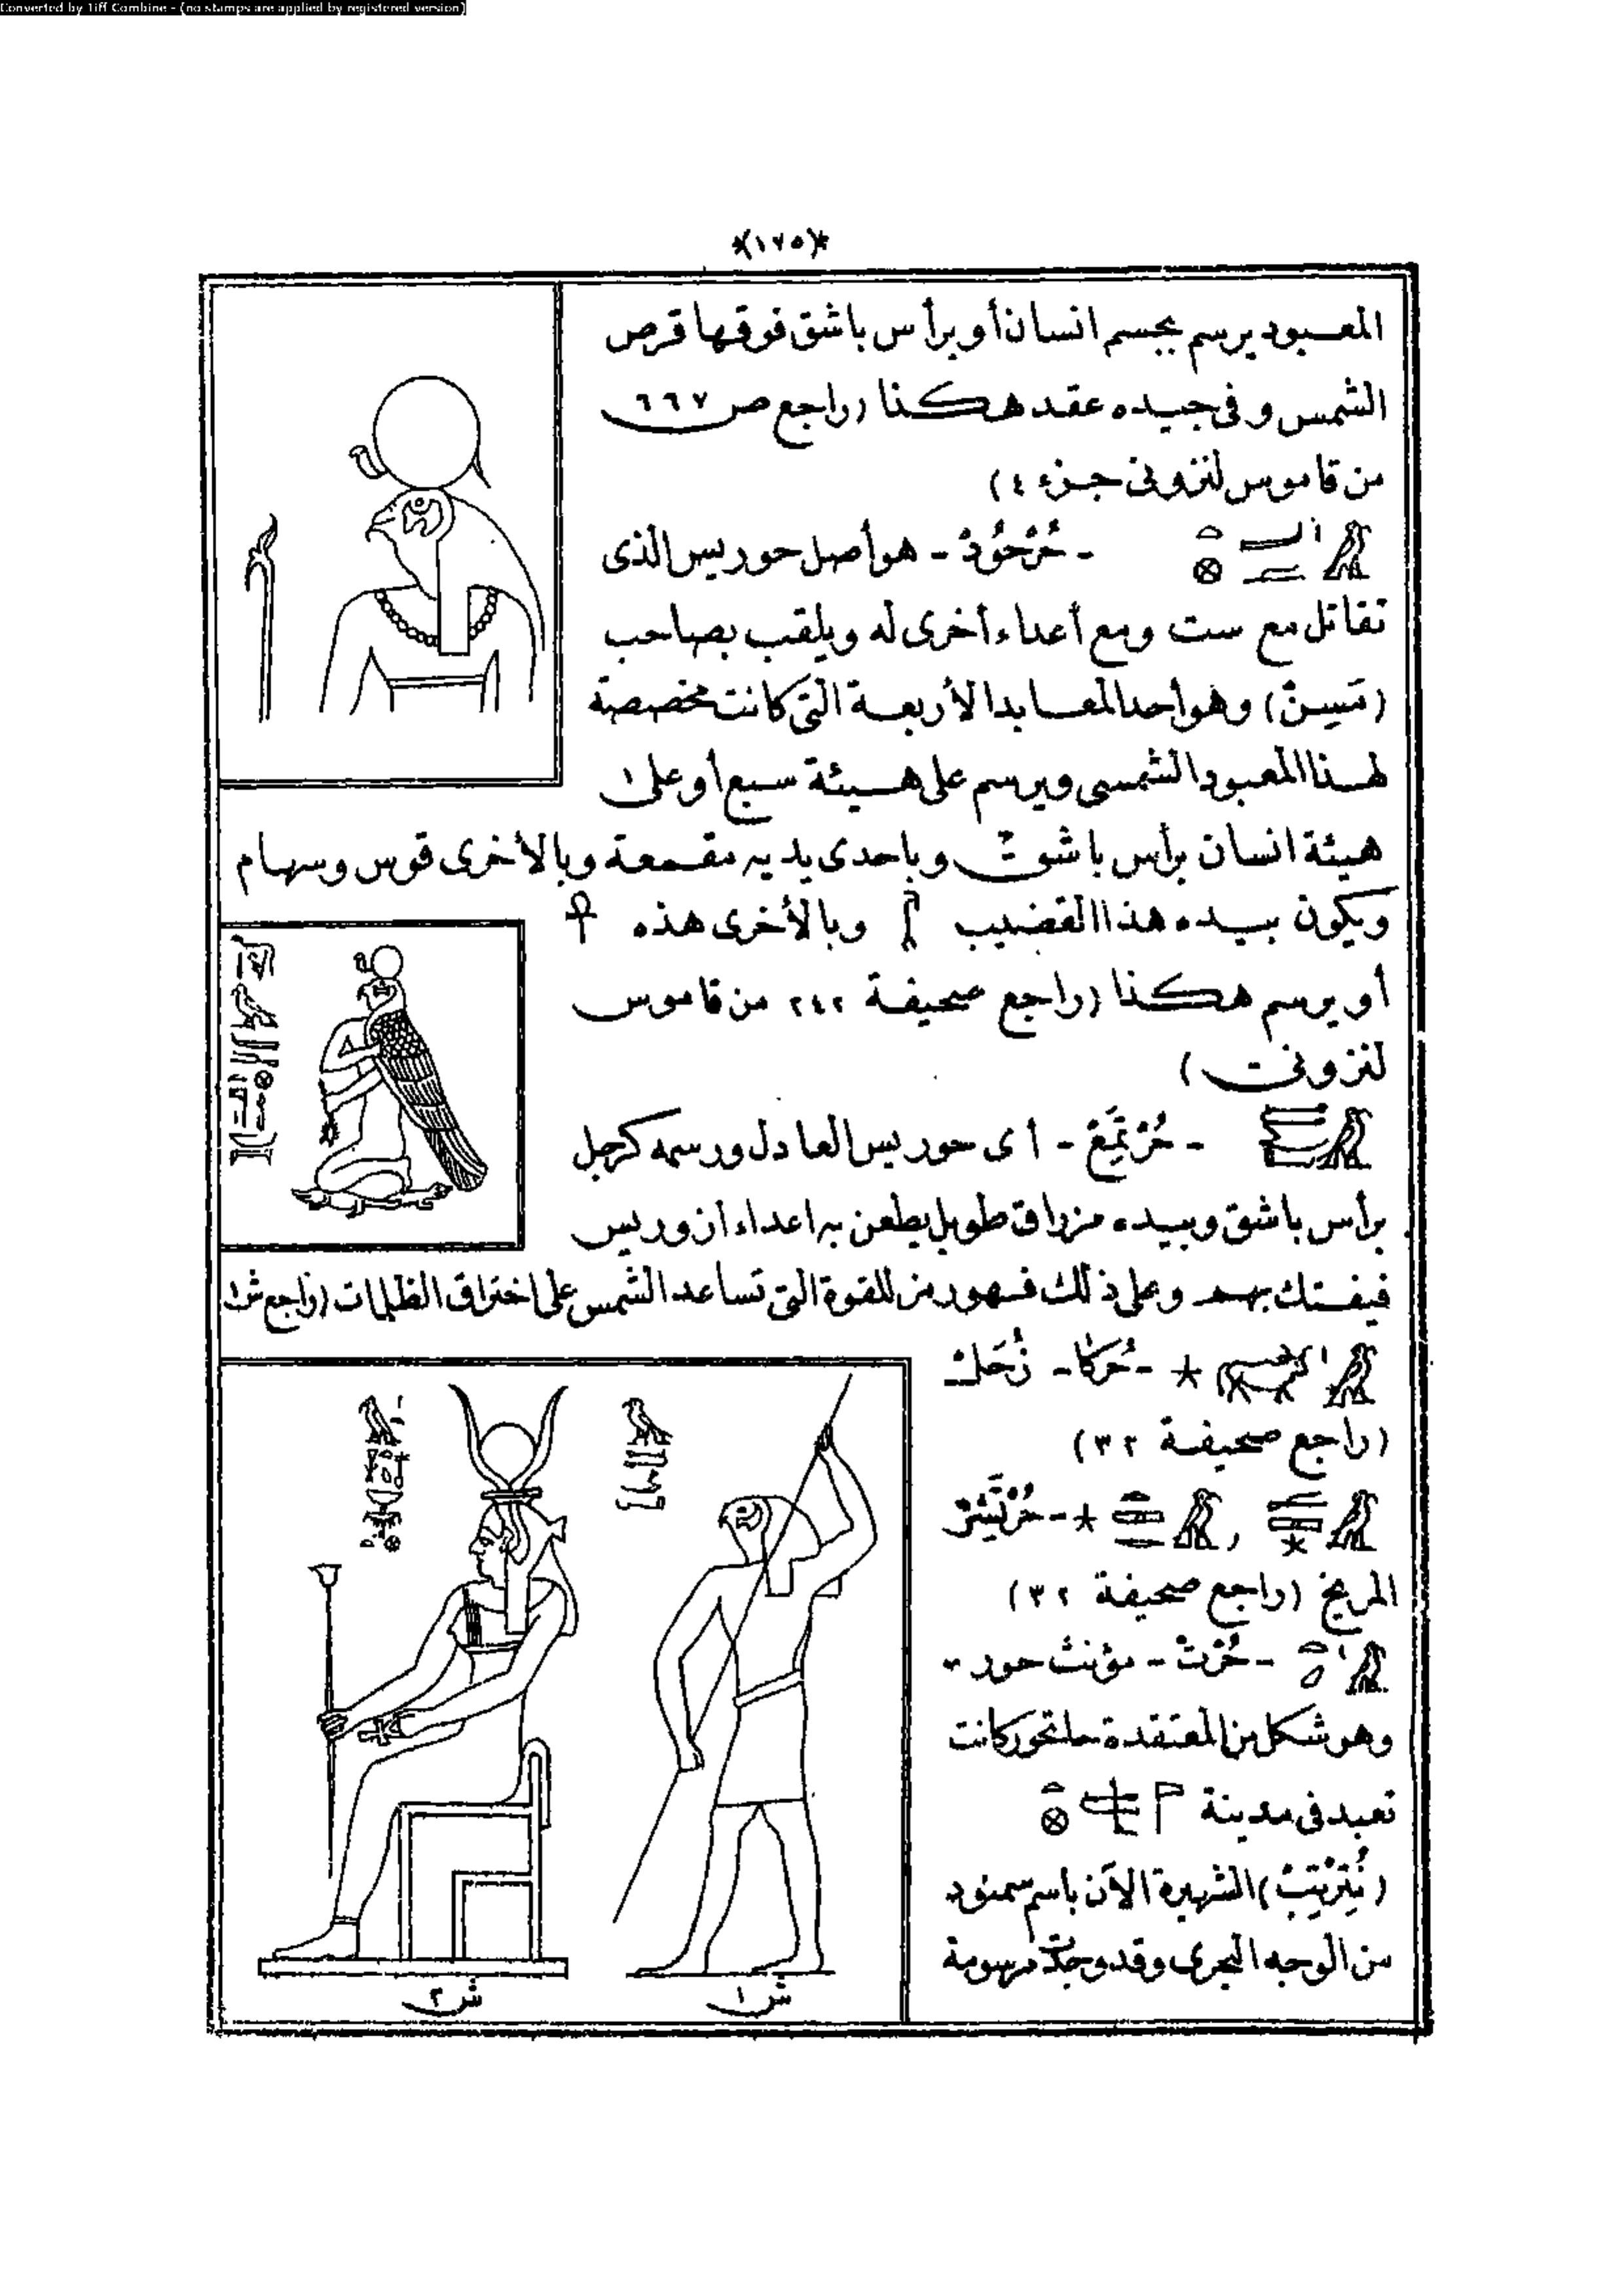 Converted by Tiff Combine - (no stamps are applied by registered version)
*(١٧٥)*
المعبود يرسم بجسم انسان أو برأس باشق فوقها قرص
الشمس وفى جيده عقد هكذا (راجع ص ٦٦٧
من قاموس لنزونى جزء ٤)
- حُرْحُودْ - هو أصل حوريس الذى
تقاتل مع ست ومع أعداء أخرى له ويلقب بصاحب
(مَسِنْ) وهو أحد المعابد الأربعة التى كانت مخصصة
لهذا المعبود الشمسى ويرسم على هيئة سبع أو على
هيئة انسان برأس باشق وباحدى يديه مقمعة وبالأخرى قوس وسهام
ويكون بيده هذا القضيب وبالأخرى هذه ☥
أو يرسم هكذا (راجع صحيفة ٢٤٢ من قاموس
لنزونى)
- حُرْتِمَعْ - أى حوريس العادل ورسمه كرجل
برأس باشق وبيده مزراق طويل يطعن به اعداء ازوريس
فيفتك بهم وعلى ذلك فهو رمز للقوة التى تساعد الشمس على اختراق الظلمات (راجع ش ١
* - حُركَا - زُحَل
(راجع صحيفة ٣٢)
, * - حُرْتَشِرْ
المريخ (راجع صحيفة ٣٢)
- حُرْتْ - مؤنث حور -
وهو شكل من المعتقدة حاتحور كانت
تعبد فى مدينة
(نُتِرْتِبْ) الشهيرة الآن باسم سمنود
من الوجه البحرى وقد وجدت مرسومة
ش ١
ش ٢